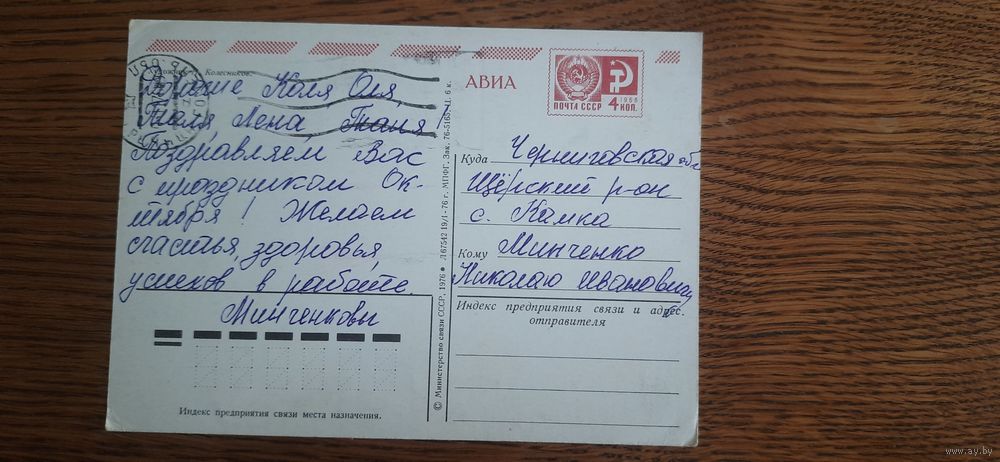 Колесников.
Дорогие Коля Оля,
Толя, Лена, Таня!
Поздравляем Вас
с праздником Ок-
тября! Желаем
счастья, здоровья,
успехов в работе.
Минченковы
Индекс предприятия связи места назначения.
© Министерство связи СССР, 1976 • Л 67542 19/I-76 г. МПФГ. Зак. 6 к.
АВИА
ПОЧТА СССР
1966
4 КОП.
Куда Черниговская обл
Щорский р-он
с. Камка
Кому Минченко
Николаю Ивановичу
Индекс предприятия связи и адрес
отправителя
www.ay.by